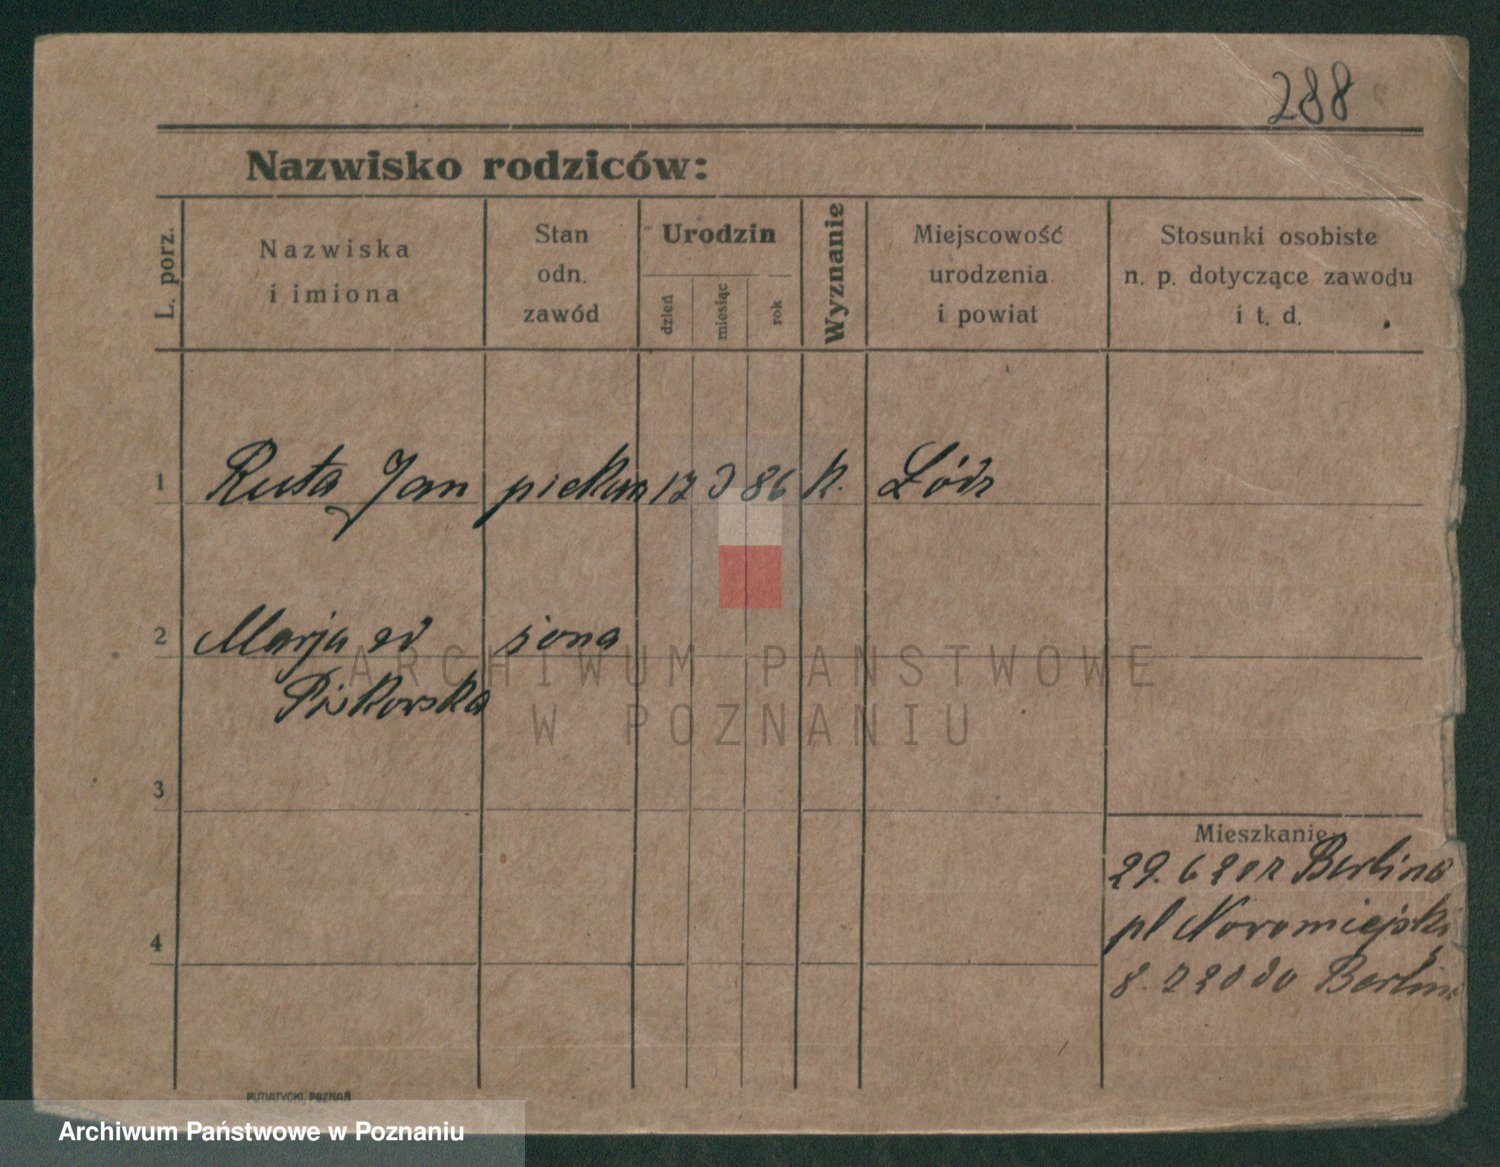 288
Nazwisko rodziców:
L. porz.
Nazwiska
i imiona
Stan
odn.
zawód
Urodzin
dzień
miesiąc
rok
Wyznanie
Miejscowość
urodzenia
i powiat
Stosunki osobiste
n. p. dotyczące zawodu
i t. d.
1 Ruta Jan piekarz 17 3 86 k. Łódz
2 Marja żona
Piskorska
3
4
Mieszkanie:
29. 6 20 z Berlina
pl Nowomiejski
8. 7 20 do Berlina
PUTIATYCKI, POZNAŃ
ARCHIWUM PAŃSTWOWE
W POZNANIU
Archiwum Państwowe w Poznaniu